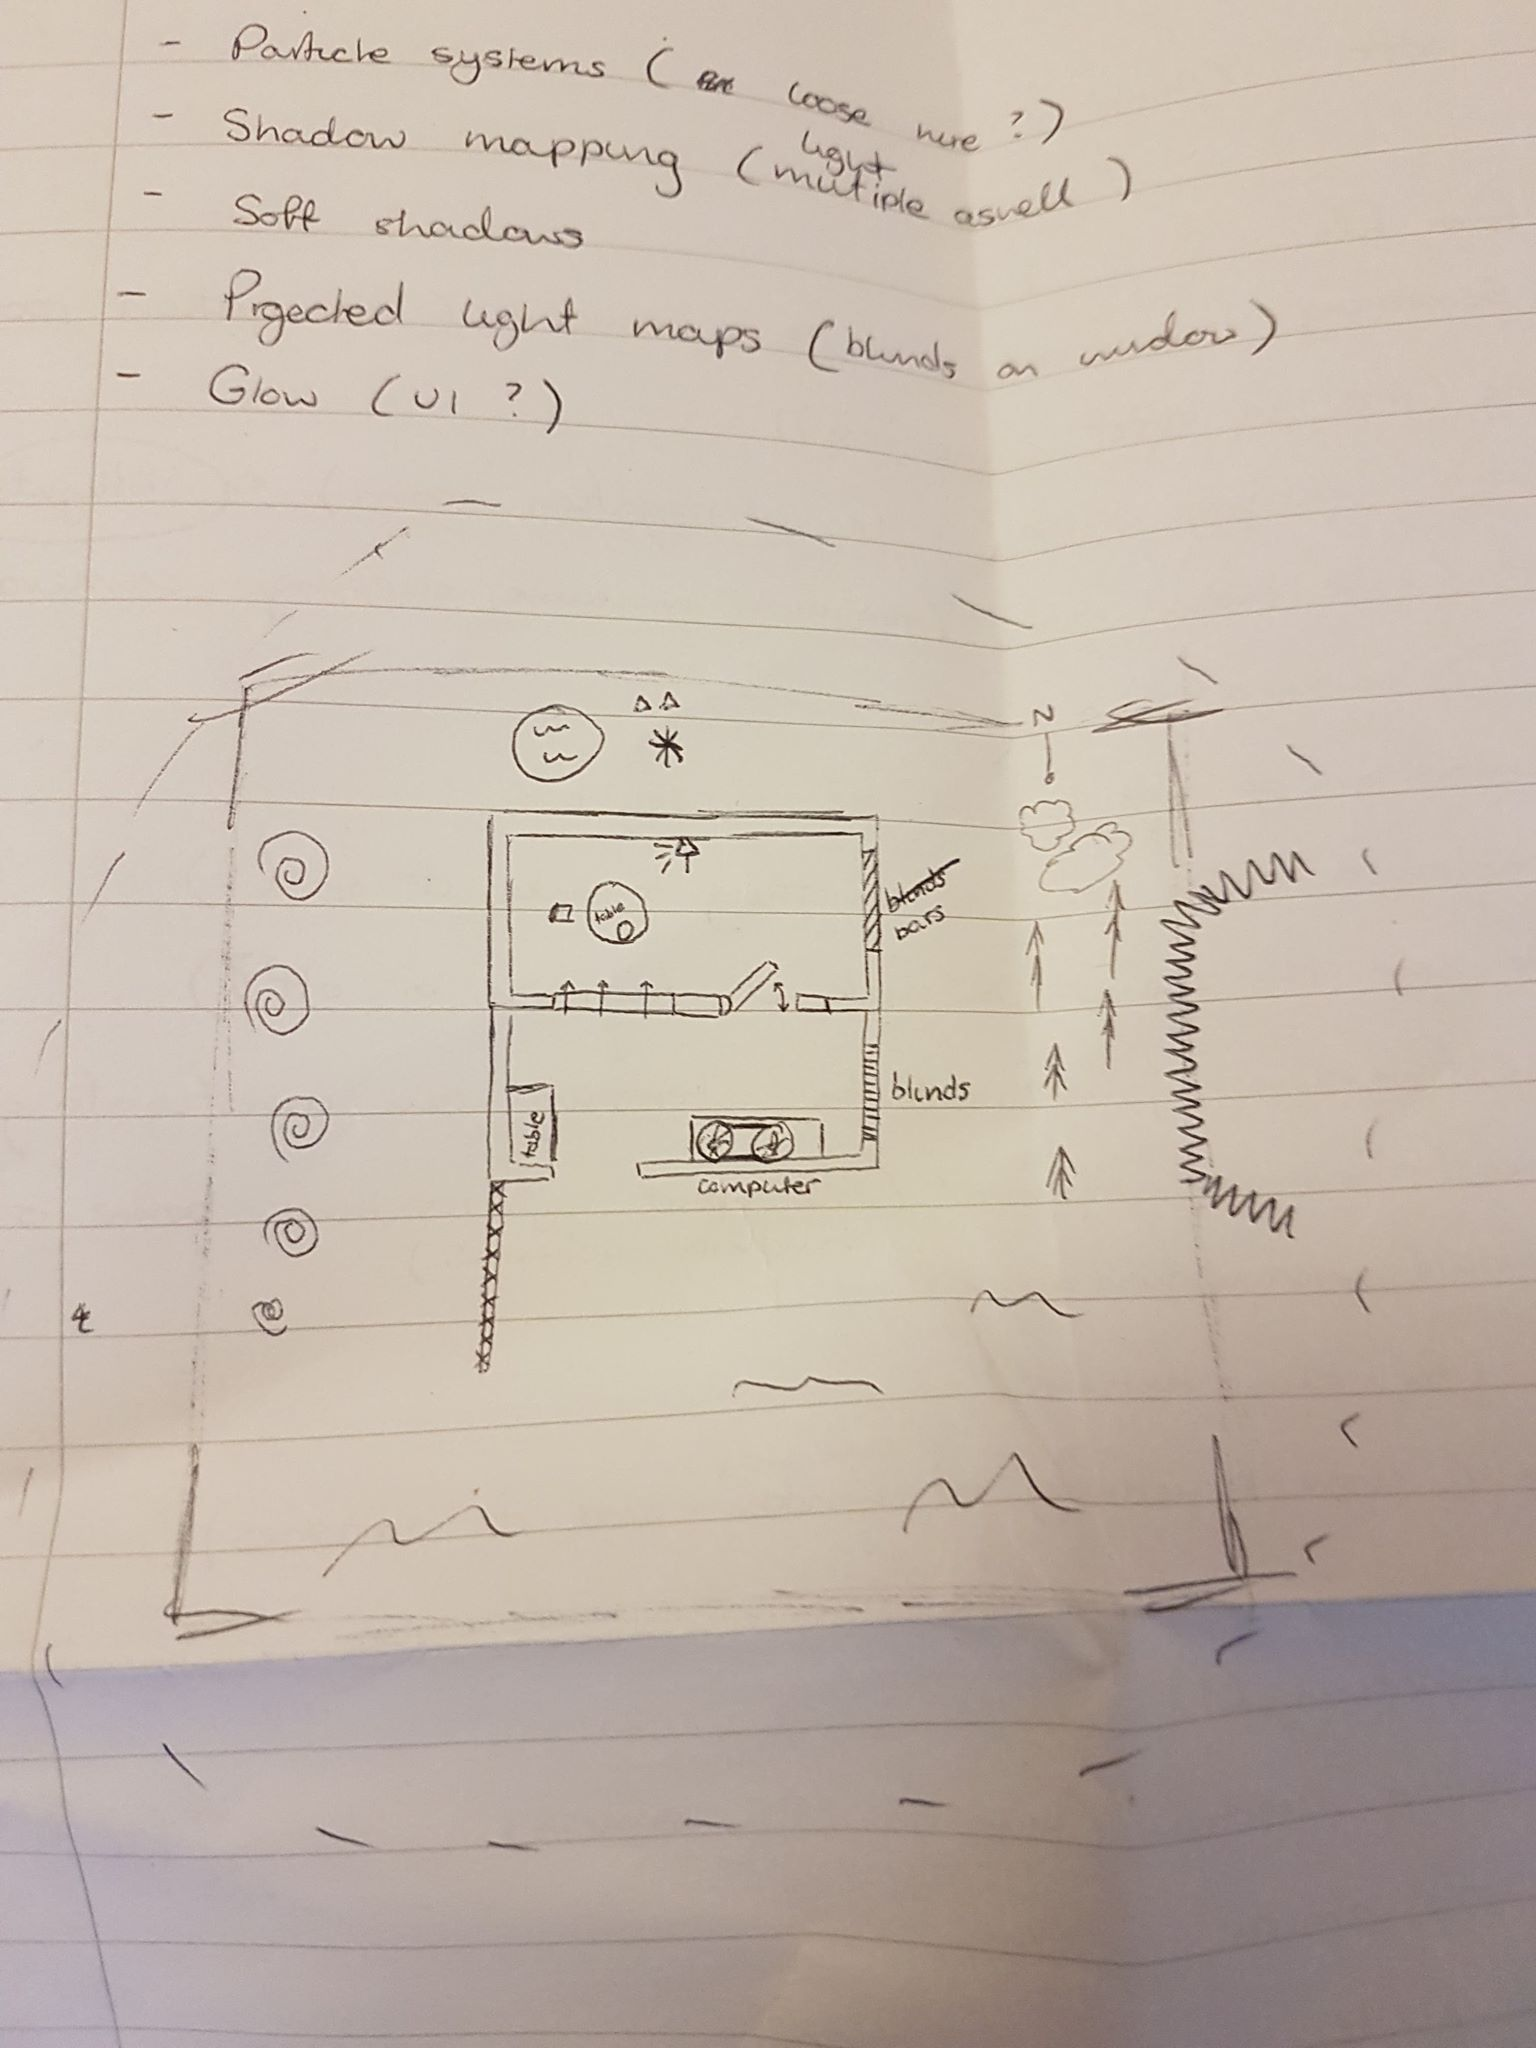 - Particle systems ( loose here ?)
- Shadow mapping (light mutiple aswell)
- Soft shadows
- Projected light maps (blinds on window)
- Glow (UI ?)
N
blinds
bars
table
blinds
table
computer